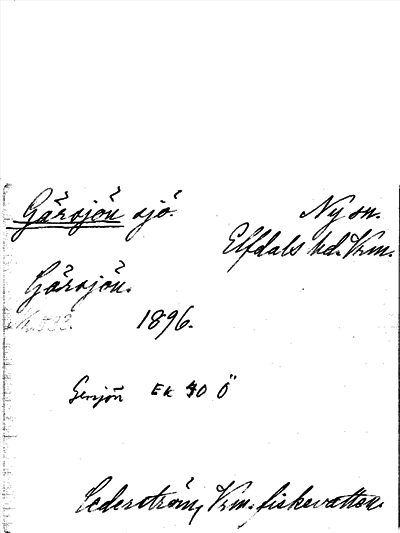 Gärsjön sjö. Ny sn.
Elfdals hd. Vrm.
Gärsjön.
1896.
Gersjön Ek 40 Ö
Cederström, Vrm. fiskevatten.